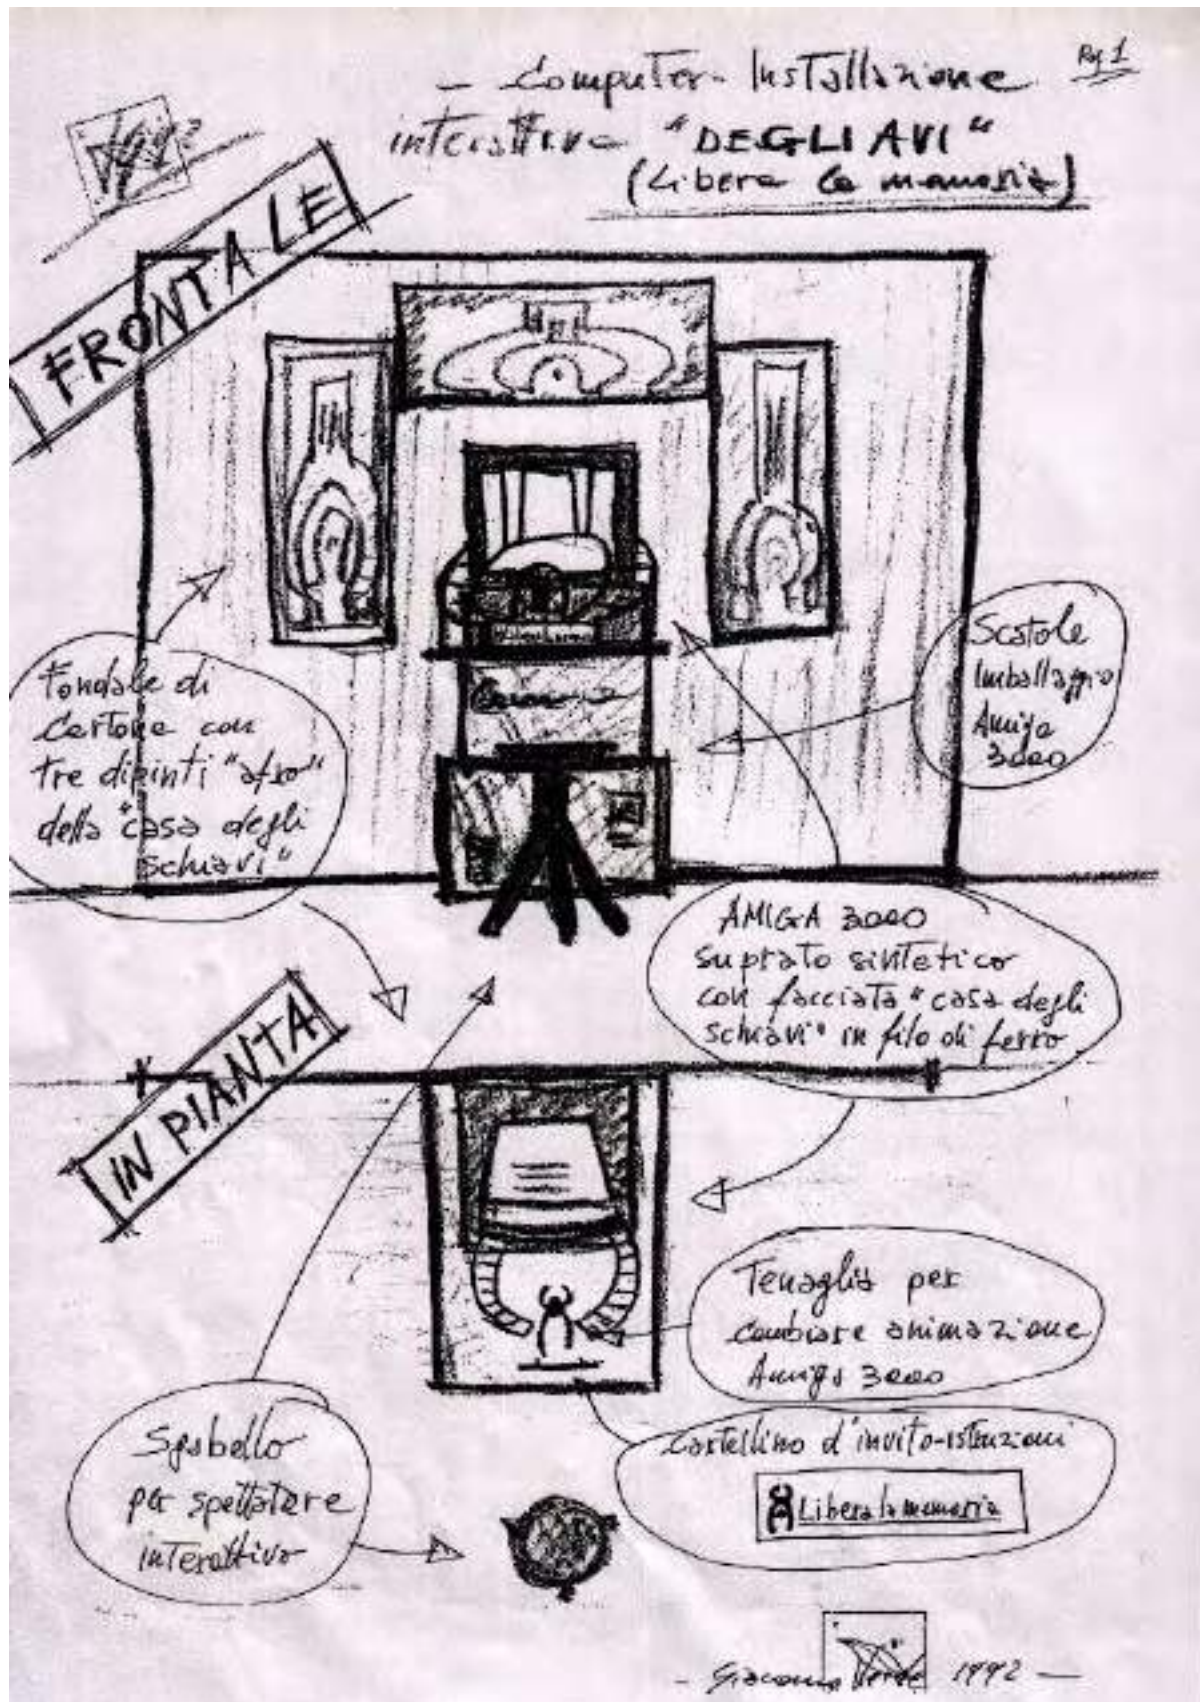 Pag 1
- Computer-Installazione
interattiva "DEGLI AVI"
(Libera la memoria)
1992
FRONTALE
Fondale di
Cartone con
tre dipinti "afro"
della "casa degli
schiavi"
Scatole
Imballaggio
Amiga
3000
Libera la memoria
AMIGA 3000
su prato sintetico
con facciata "casa degli
schiavi" in filo di ferro
IN PIANTA
Tenaglia per
cambiare animazione
Amiga 3000
Cartellino d'invito-istruzioni
Libera la memoria
Sgabello
per spettatore
interattivo
- Giacomo Verde 1992 -